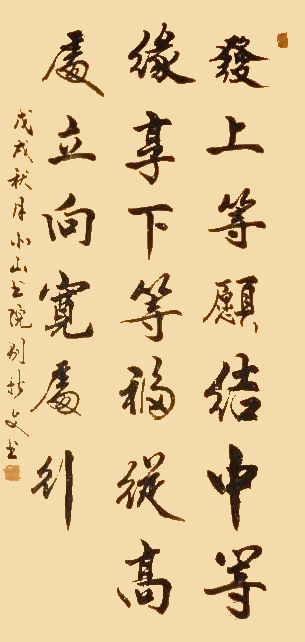 發上等願結中等
緣享下等福從高
處立向寬處行
戊戌秋月小山書院劉新文書